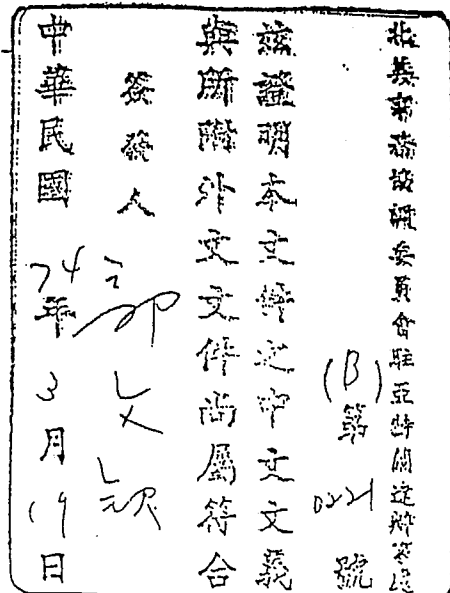 北美事務協調委員會駐亞特蘭達辦事處
(B)第0221號
茲證明本文件之中文文義
與所附外文文件尚屬符合
簽發人
中華民國74年3月19日